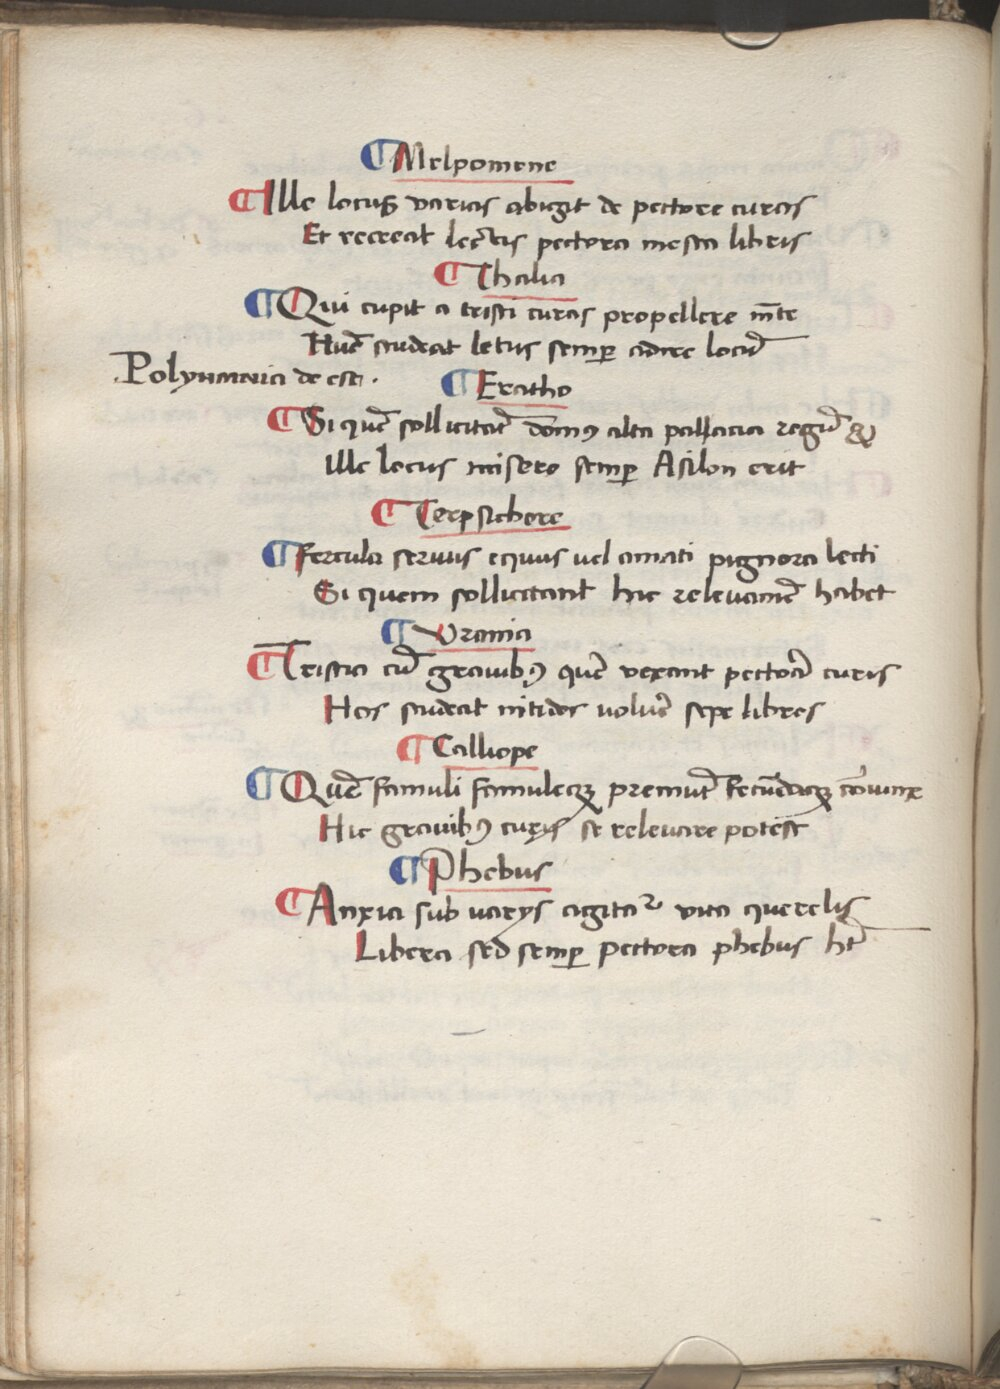 ¶ Melpomene
¶ Ille locus varias abigit de pectore curas
Et recreat lectis pectora mesta libris
¶ Thalia
¶ Qui cupit a tristi curas propellere mēte
Huc̄ studeat letus semp̱ adire locū
Polymnia de est.
¶ Eratho
¶ Si quē sollicitat̄ domꝰ alta pallacia regū
Ille locus misero semp̱ Asilon erit
¶ Terpsichore
¶ Fercula servus equus vel amati pignora lecti
Si quem sollicitant hic relevamē habet
¶ Vrania
¶ Tristia cū gravibꝰ quē vexant pectora curis
Hos studeat nitidos voluē sepe libros
¶ Calliope
¶ Quē famuli famuleqꝫ premūt fecūdaqꝫ cōiunx
Hic gravibꝰ curis se relevare potest
¶ Phebus
¶ Anxia sub varijs agitaꝛ vita querelis
Libera sed semp̱ pectora phebus hꝫ